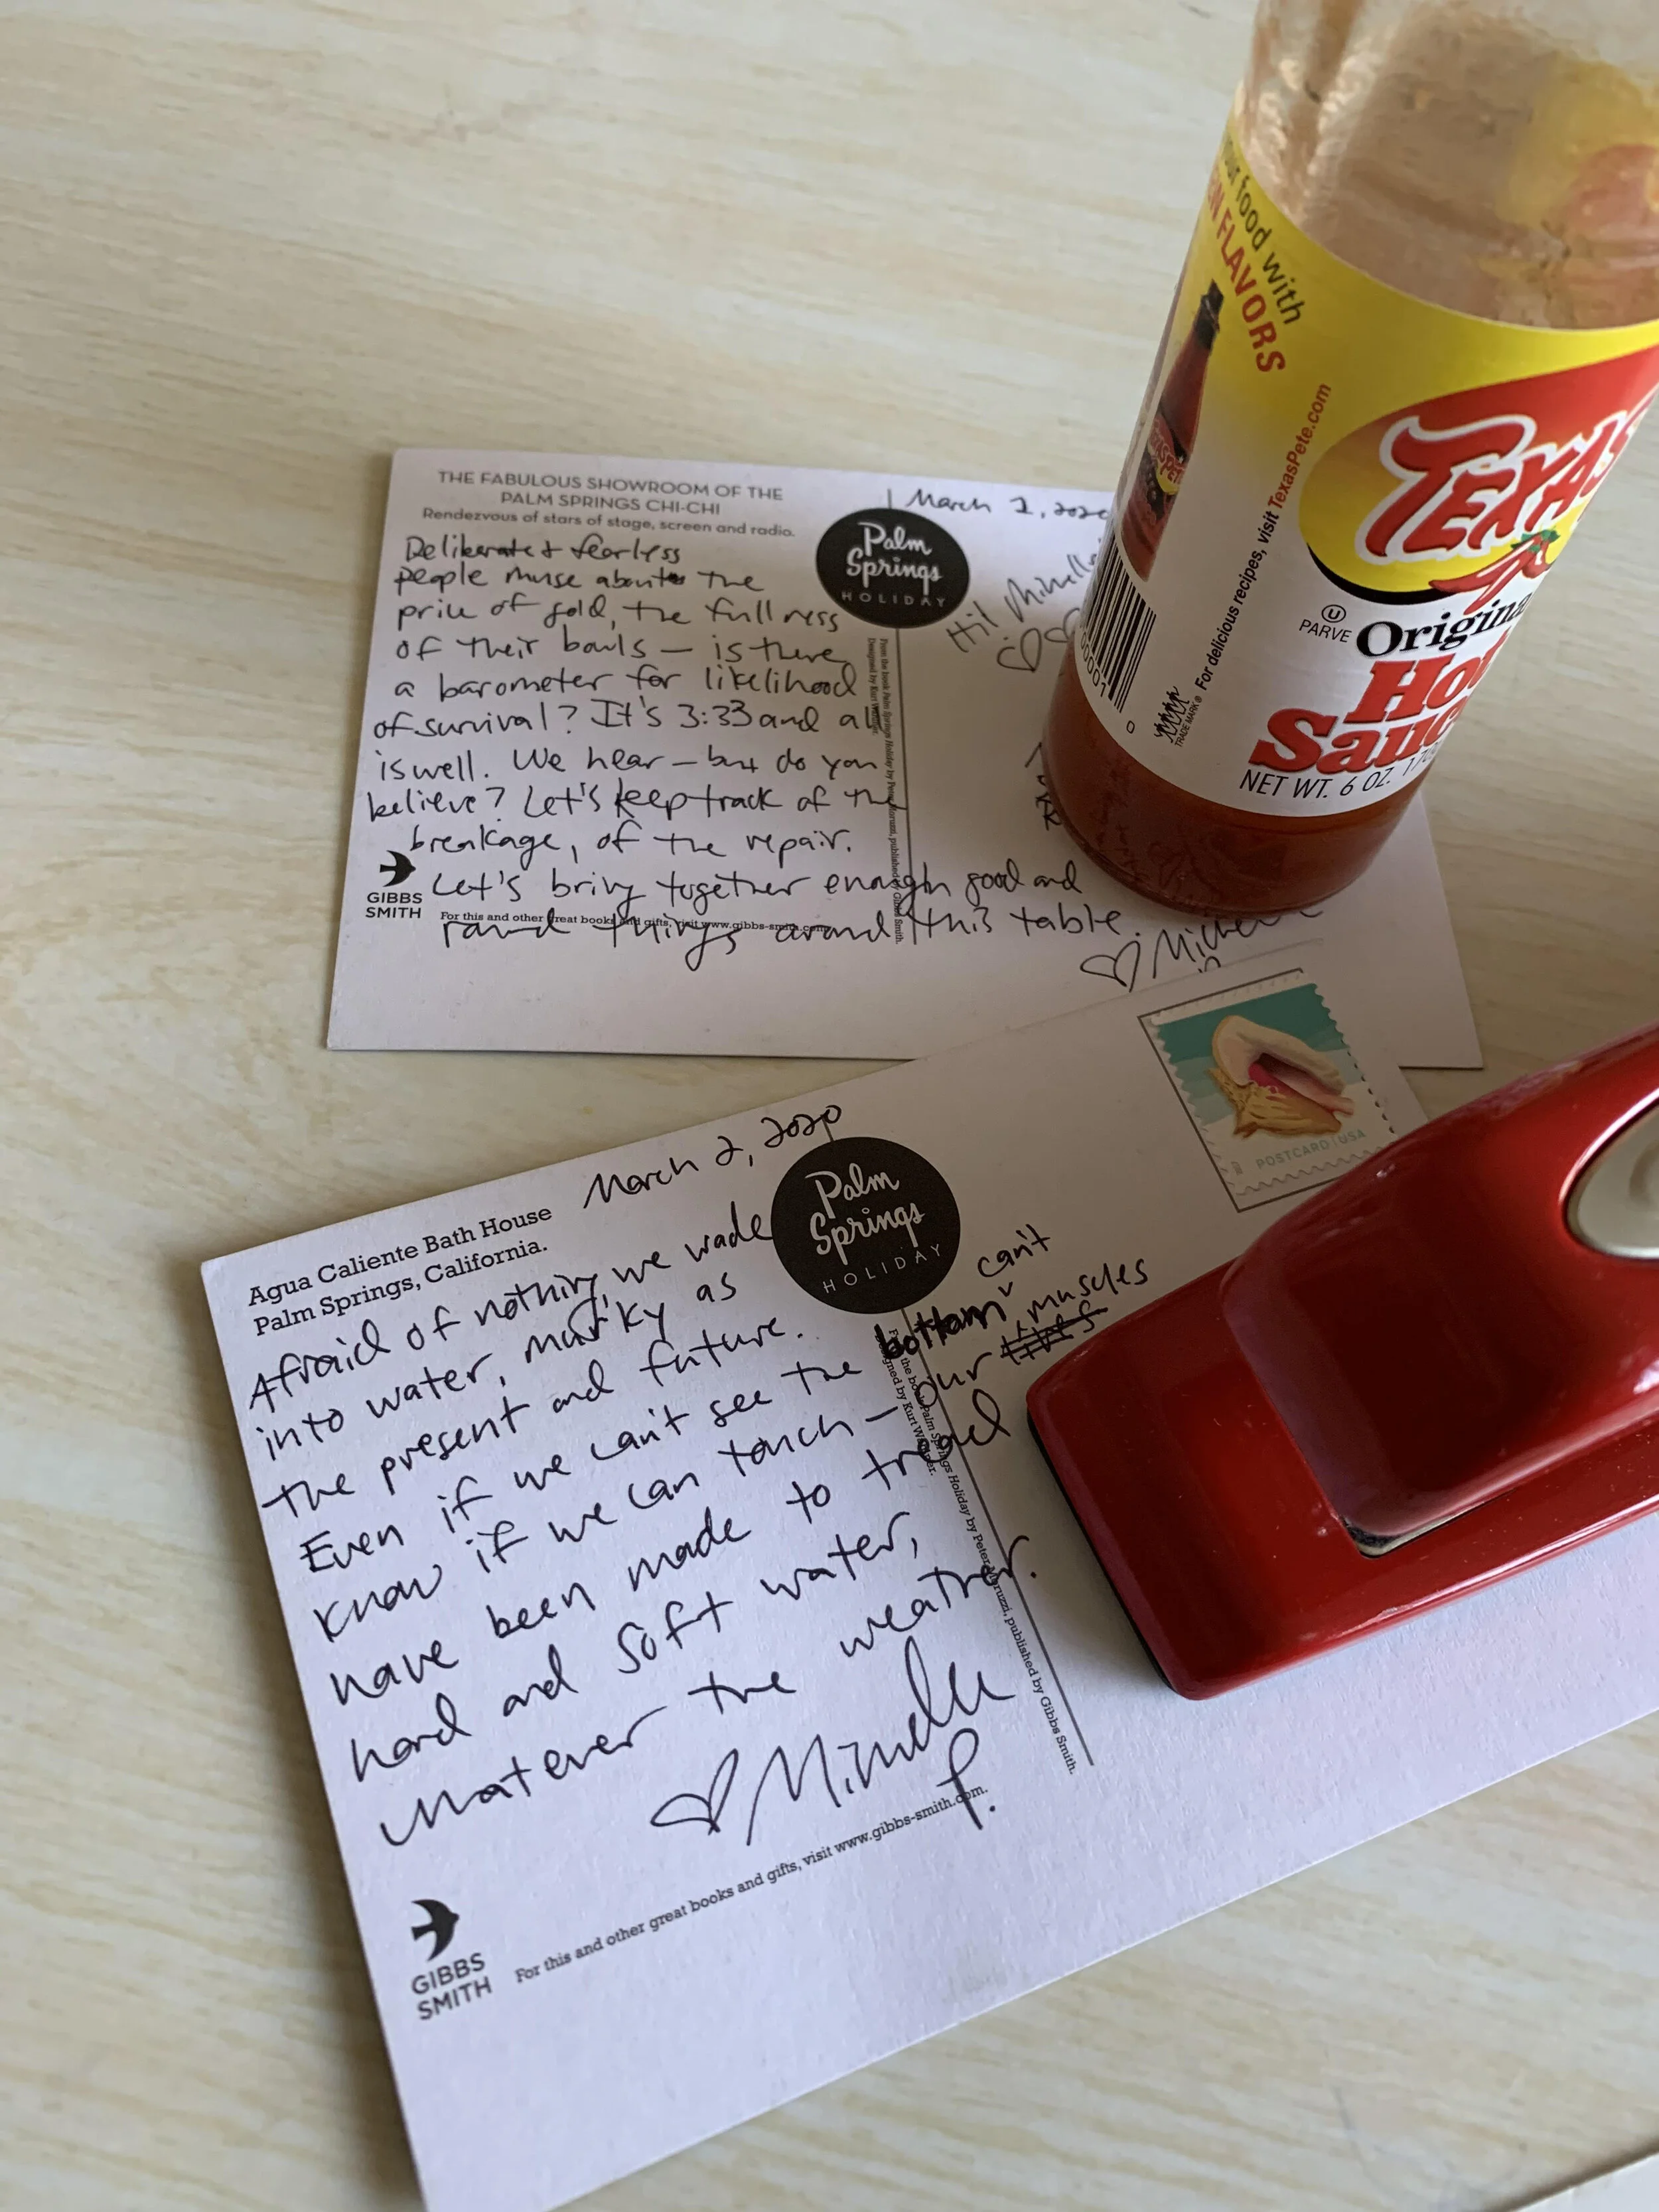 your food with
FLAVORS
For delicious recipes, visit TexasPete.com
TEXAS
U
PARVE
Original
Hot
Sauce
NET WT. 6 OZ.
TRADE MARK®
0
THE FABULOUS SHOWROOM OF THE
PALM SPRINGS CHI-CHI
Rendezvous of stars of stage, screen and radio.
March 2, 2020
Palm
Springs
HOLIDAY
Deliberate & fearless
people muse about the
price of gold, the fullness
of their bowls — is there
a barometer for likelihood
of survival? It's 3:33 and all
is well. We hear — but do you
believe? Let's keep track of the
breakage, of the repair.
Let's bring together enough good and
things around this table.
Hi!
♡ Michelle
GIBBS
SMITH
For this and other great books and gifts, visit www.gibbs-smith.com.
March 2, 2020
Agua Caliente Bath House
Palm Springs, California.
Palm
Springs
HOLIDAY
POSTCARD | USA
Afraid of nothing, we wade
into water, murky as
the present and future.
Even if we can't see the bottom can't
know if we can touch — our muscles
have been made to tread
hard and soft water,
whatever the weather.
♡ Michelle
P.
From the book Palm Springs Holiday by Peter Moruzzi, published by Gibbs Smith.
Designed by Kurt
GIBBS
SMITH
For this and other great books and gifts, visit www.gibbs-smith.com.